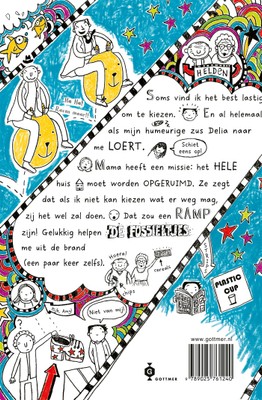 HELDEN
Ha Ha!
Soms vind ik het best lastig
om te kiezen. En al helemaal
als mijn humeurige zus Delia naar
me LOERT.
Schiet
eens op!
Mama heeft een missie: het HELE
huis moet worden OPGERUIMD. Ze zegt
dat als ik niet kan kiezen wat er weg mag,
zij het wel zal doen. Dat zou een RAMP
zijn! Gelukkig helpen DE FOSSIELTJES
me uit de brand
(een paar keer zelfs).
Hoera!
cereals
chips
Niet van mij
PLASTIC
CUP
www.gottmer.nl
GOTTMER
9 789025 761240